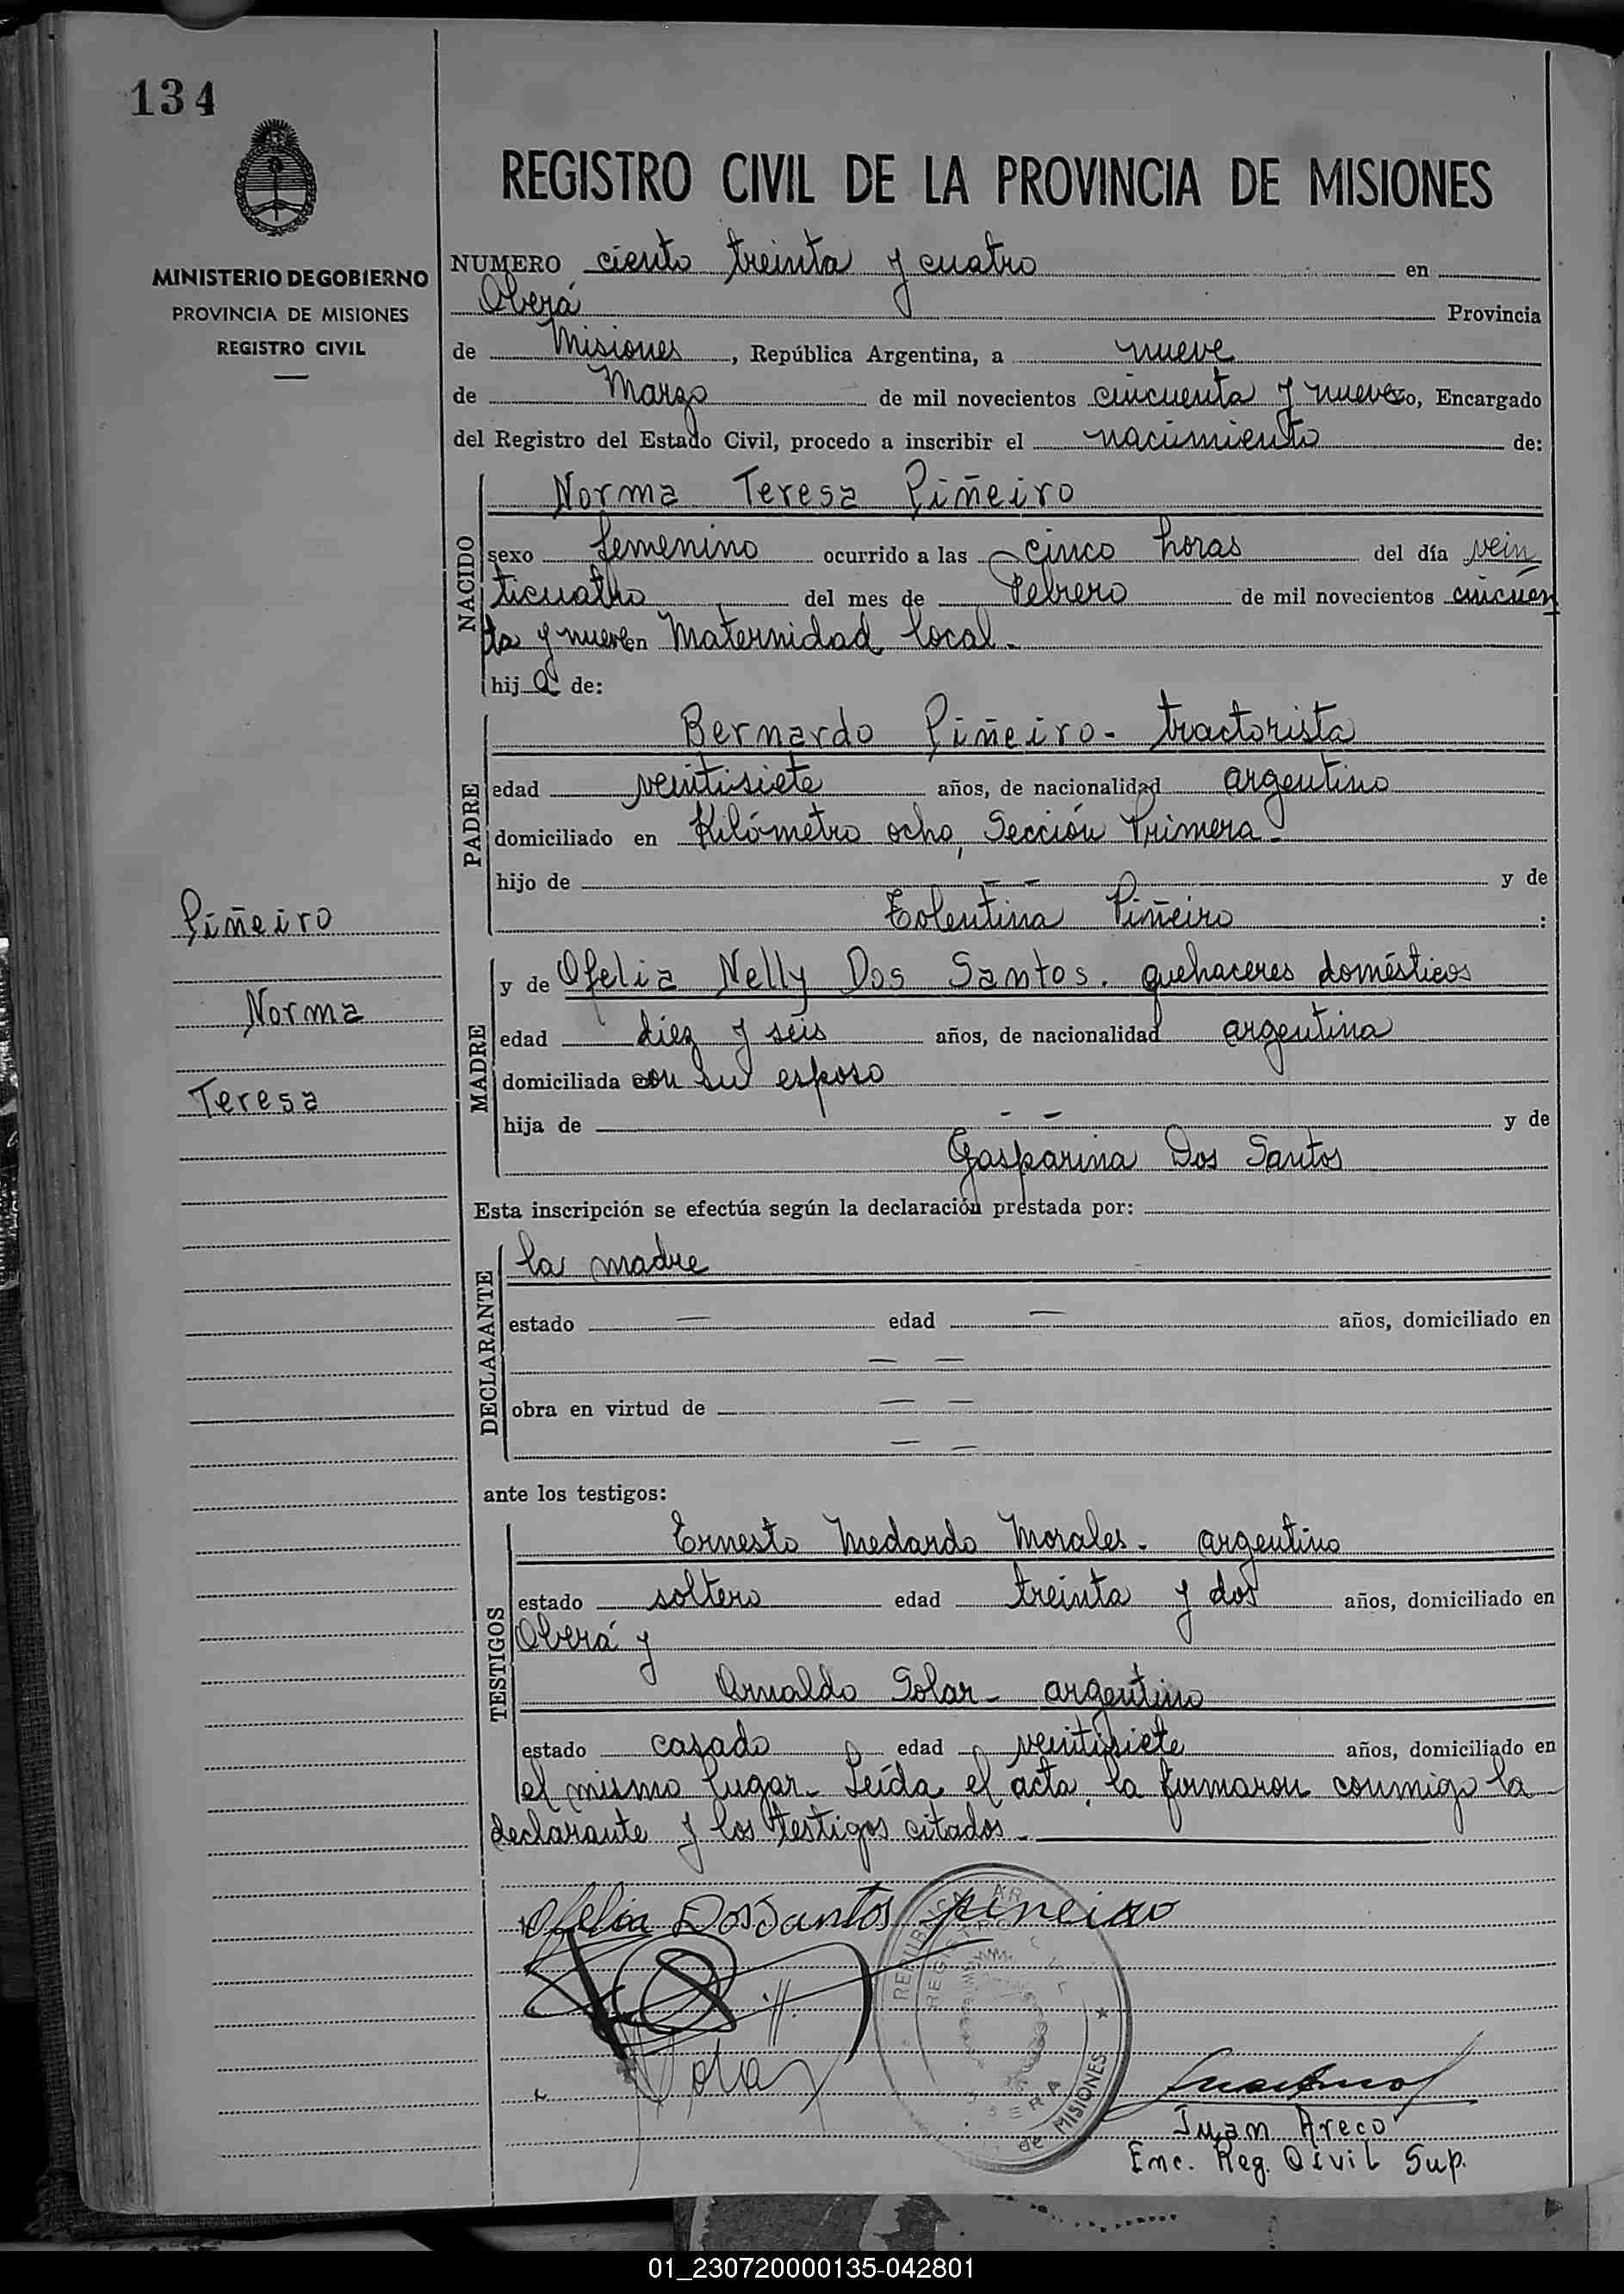 134
REGISTRO CIVIL DE LA PROVINCIA DE MISIONES
MINISTERIO DE GOBIERNO
PROVINCIA DE MISIONES
REGISTRO CIVIL
NUMERO ciento treinta y cuatro en
Oberá Provincia
de Misiones, República Argentina, a nueve
de Marzo de mil novecientos cincuenta y nueve, Encargado
del Registro del Estado Civil, procedo a inscribir el nacimiento de:
NACIDO
Norma Teresa Piñeiro
sexo femenino ocurrido a las cinco horas del día vein
ticuatro del mes de Febrero de mil novecientos cincuen
ta y nueve en Maternidad local.
hija de:
PADRE
Bernardo Piñeiro - tractorista
edad veintisiete años, de nacionalidad argentino
domiciliado en Kilómetro ocho, Sección Primera -
hijo de — — y de
Tolentina Piñeiro :
MADRE
y de Ofelia Nelly Dos Santos. quehaceres domésticos
edad diez y seis años, de nacionalidad argentina
domiciliada con su esposo
hija de - - y de
Gasparina Dos Santos
Piñeiro
Norma
Teresa
Esta inscripción se efectúa según la declaración prestada por:
DECLARANTE
la madre
estado — edad — años, domiciliado en
— —
obra en virtud de — —
— —
ante los testigos:
TESTIGOS
Ernesto Medardo Morales. argentino
estado soltero edad treinta y dos años, domiciliado en
Oberá y
Arnaldo Solar - argentino
estado casado edad veintisiete años, domiciliado en
el mismo lugar. Leída el acta, la firmaron conmigo la
declarante y los testigos citados.
Ofelia Dos Santos piñeiro
REPUBLICA AR
REGISTRO CIVIL
OBERA
de MISIONES
Juan Areco
Enc. Reg. Civil Sup.
01_230720000135-042801